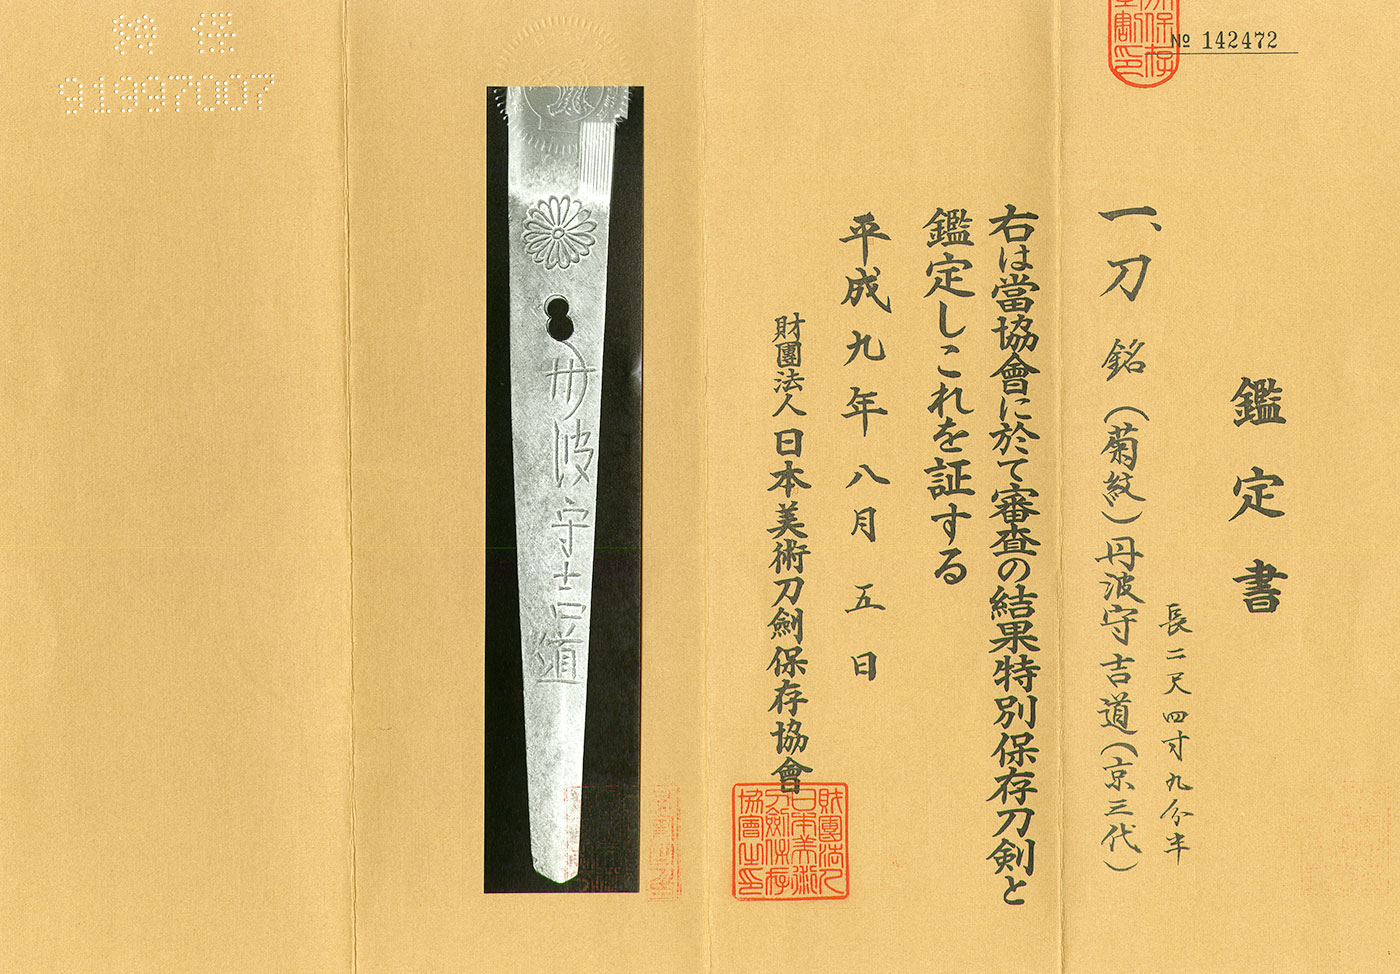 № 142472
鑑定書
長二尺四寸九分半
一、刀 銘（菊紋）丹波守吉道（京三代）
右は當協會に於て審査の結果特別保存刀剣と
鑑定しこれを証する
平成九年八月五日
財團法人日本美術刀劍保存協會
財團法人
日本美術
刀劍保存
協會之印
丹波守吉道
特保
91997007